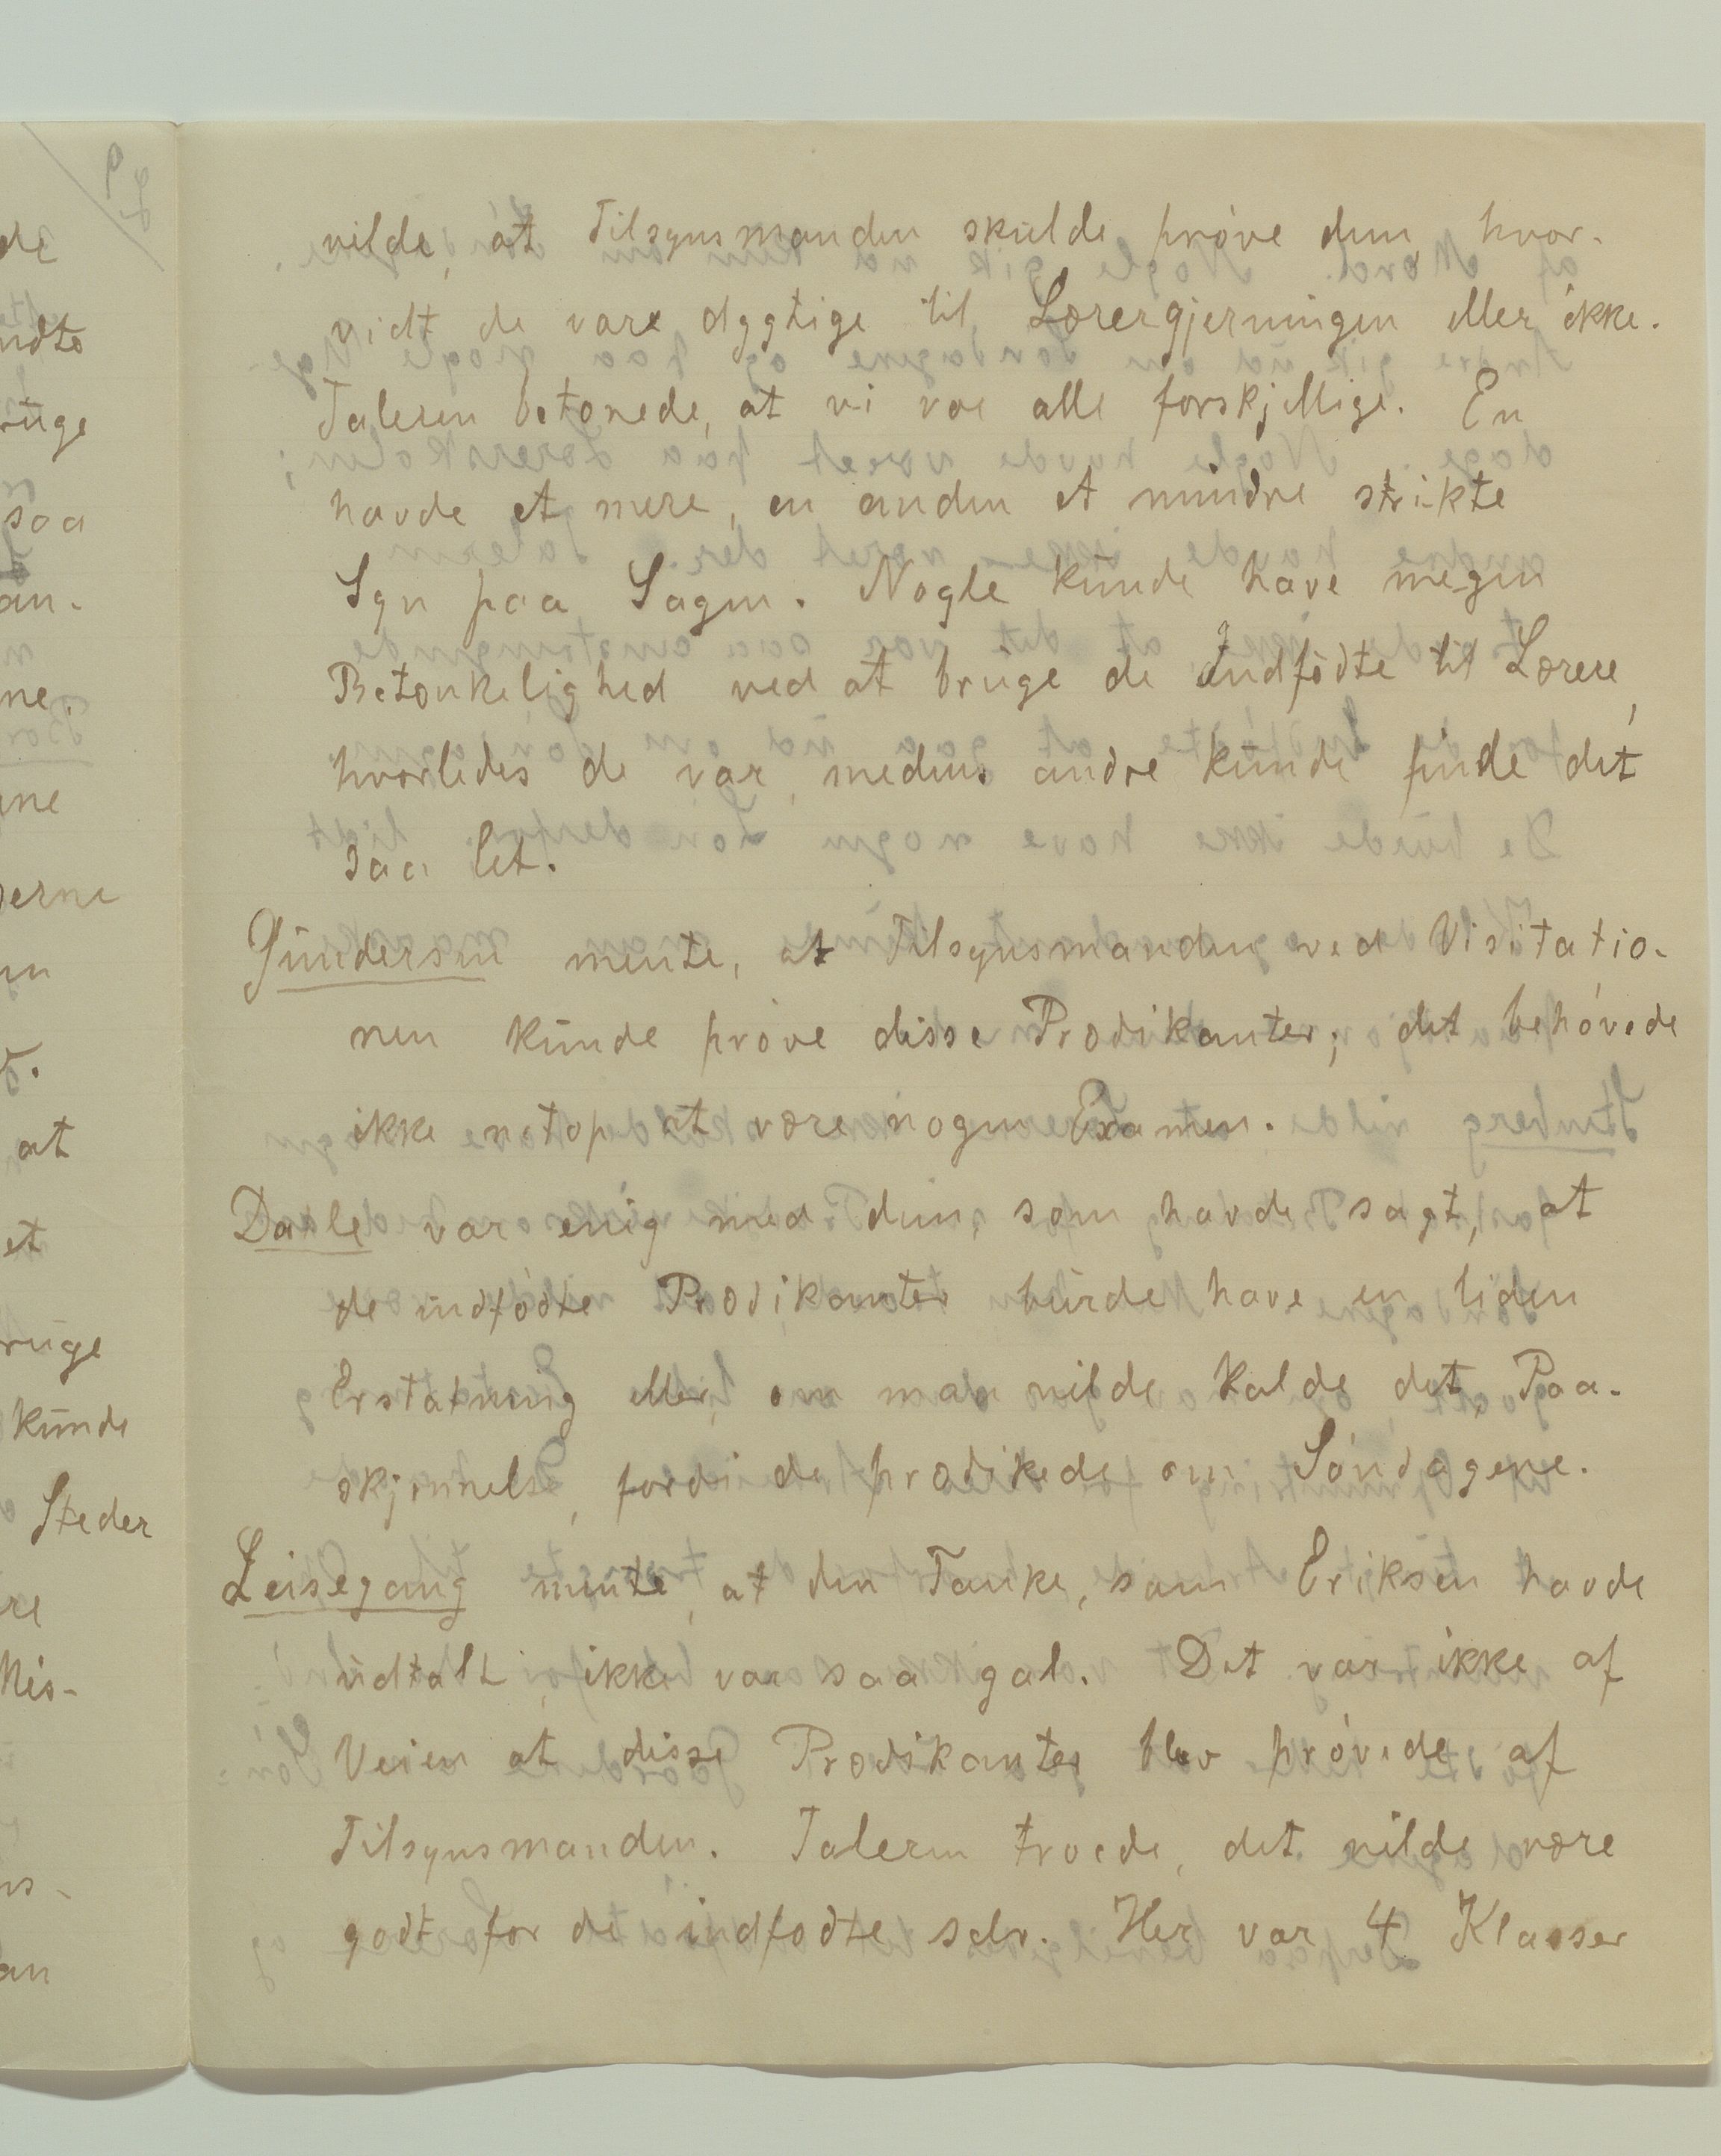 vilde, at Tilsynsmanden skulde prøve dem, hvor-
vidt de vare dygtige til Lærergjerningen eller ikke.
Taleren betonede, at vi var alle forskjellige. En
havde et mere, en anden et mindre strikte
Syn paa Sagen. Nogle kunde have megen
Betænkelighed ved at bruge de Indfødte til Lærere,
hvorledes de var, medens andre kunde finde det
saa let.
Gundersen mente, at Tilsynsmanden ved Visitatio-
nen kunde prøve disse Prædikanter; det behøvede
ikke netop at være nogen Examen.
Dahle var enig med dem, som havde sagt, at
de indfødte Prædikanter burde have en liden
Erstatning eller, om man vilde kalde det, Paa-
skjønnelse, fordi de prædikede om Søndagene.
Leisegang mente, at den Tanke, som Eriksen havde
udtalt, ikke var saa gal. Det var ikke af
Veien at disse Prædikanter blev prøvede af
Tilsynsmanden. Taleren troede, det vilde være
godt for de indfødte selv. Her var 4 Klasser
de
ndte
ruge
saa
an-
ne.
ne
erne
en
at
et
ruge
kunde
Steder
re
Mis-
ns-
an